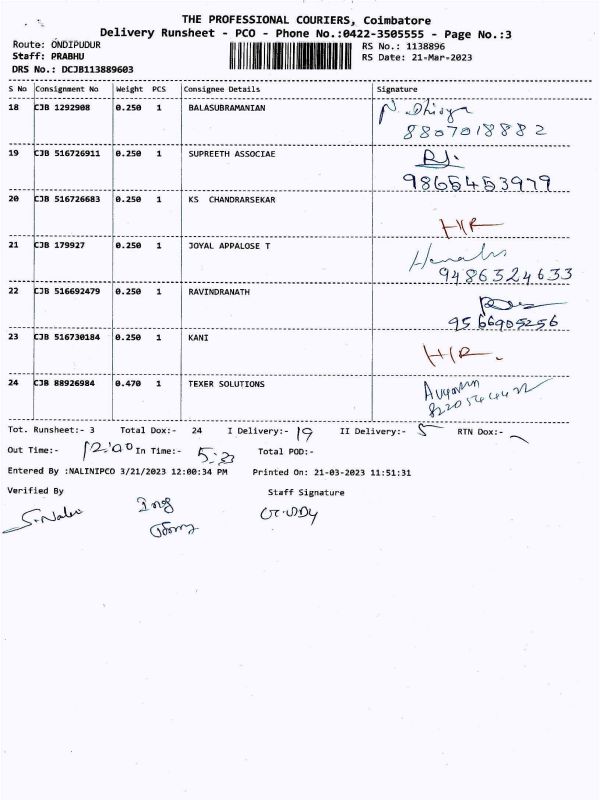 THE PROFESSIONAL COURIERS, Coimbatore
Delivery Runsheet - PCO - Phone No.:0422-3505555 - Page No.:3
Route: ONDIPUDUR RS No.: 1138896
Staff: PRABHU RS Date: 21-Mar-2023
DRS No.: DCJB113889603
S No Consignment No Weight PCS Consignee Details Signature
18 CJB 1292908 0.250 1 BALASUBRAMANIAN N. Dhivya
8807018882
19 CJB 516726911 0.250 1 SUPREETH ASSOCIAE
9865453979
20 CJB 516726683 0.250 1 KS CHANDRARSEKAR
H/R
21 CJB 179927 0.250 1 JOYAL APPALOSE T
9486324633
22 CJB 516692479 0.250 1 RAVINDRANATH
9566905256
23 CJB 516730184 0.250 1 KANI
H/R.
24 CJB 88926984 0.470 1 TEXER SOLUTIONS
Tot. Runsheet:- 3 Total Dox:- 24 I Delivery:- 19 II Delivery:- 5 RTN Dox:-
Out Time:- 12:00 In Time:- Total POD:-
Entered By :NALINIPCO 3/21/2023 12:00:34 PM Printed On: 21-03-2023 11:51:31
Verified By Staff Signature
S. Nalini